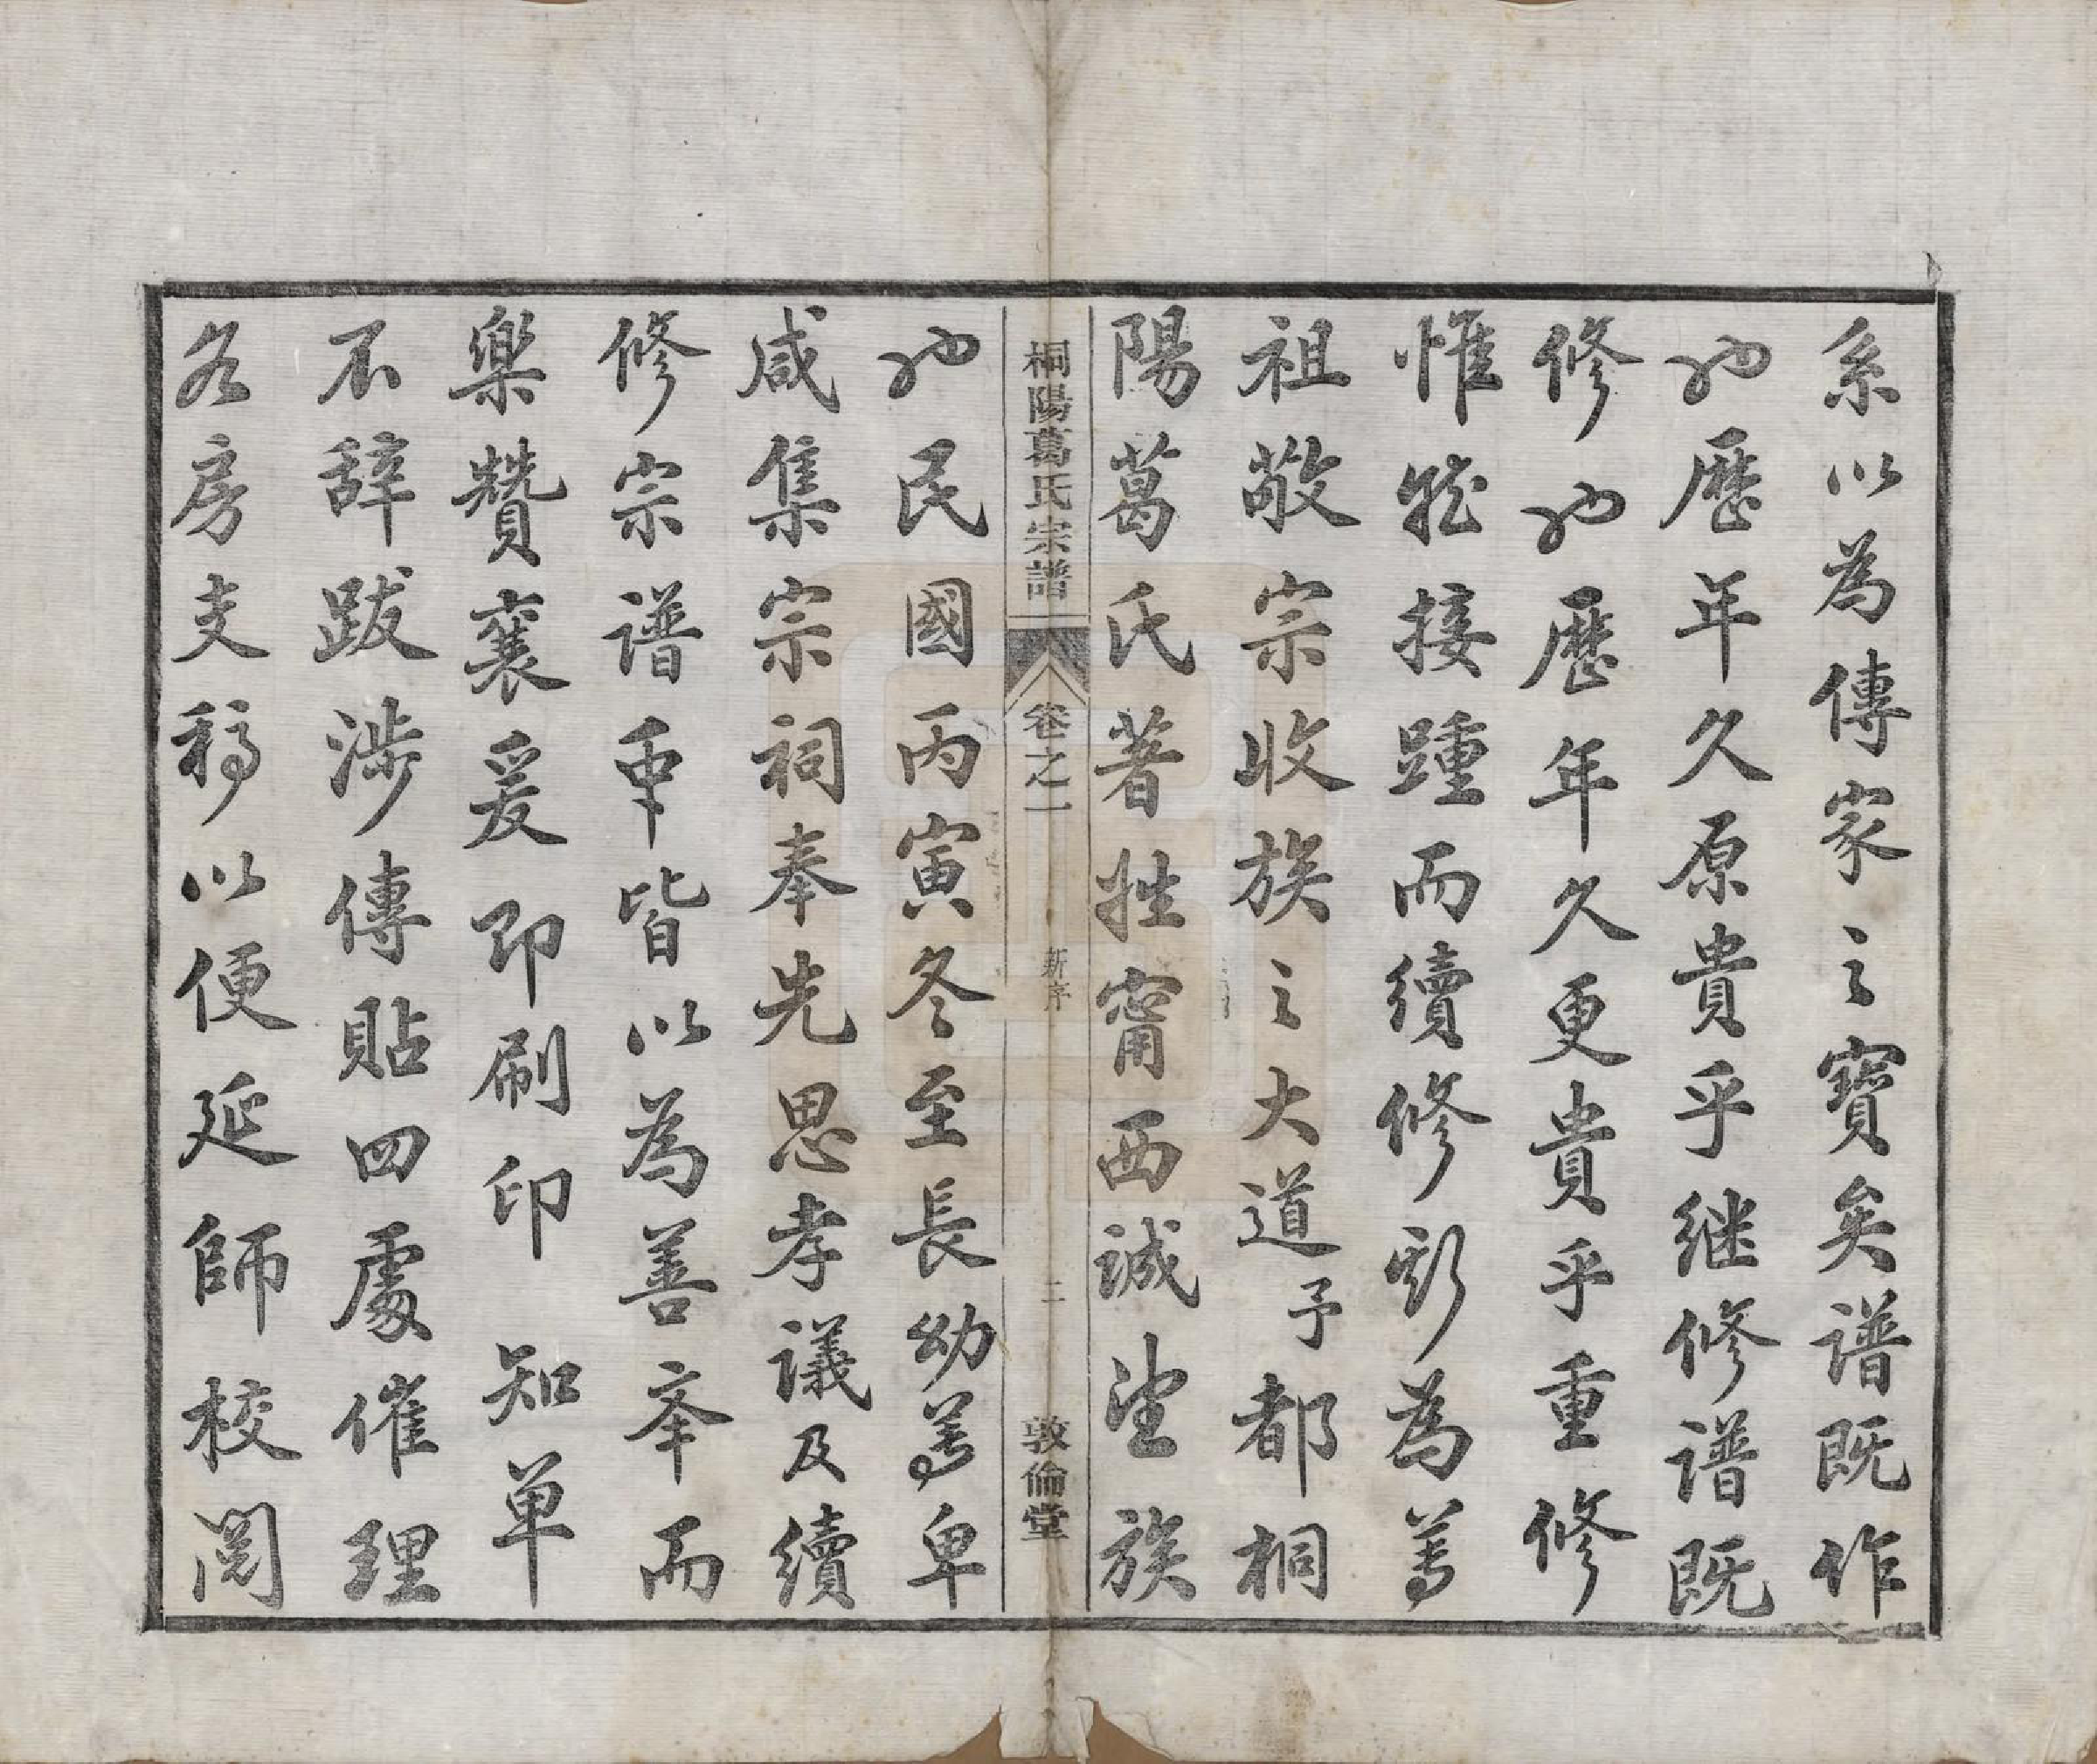 系以為傳家之寶矣譜既作
也歷年久原貴乎继修譜既
修也歷年久更貴乎重修
惟能接踵而續修斯為尊
祖敬宗收族之大道予都桐
陽葛氏著姓甯西誠望族
桐陽葛氏宗譜
卷之一
新序
二
敦倫堂
也民國丙寅冬至長幼尊卑
咸集宗祠奉先思孝議及續
修宗譜事皆以為善举而
樂贊襄爰即刷印 知單
不辞跋涉傳貼四處催理
各房支稿以便延師校閱